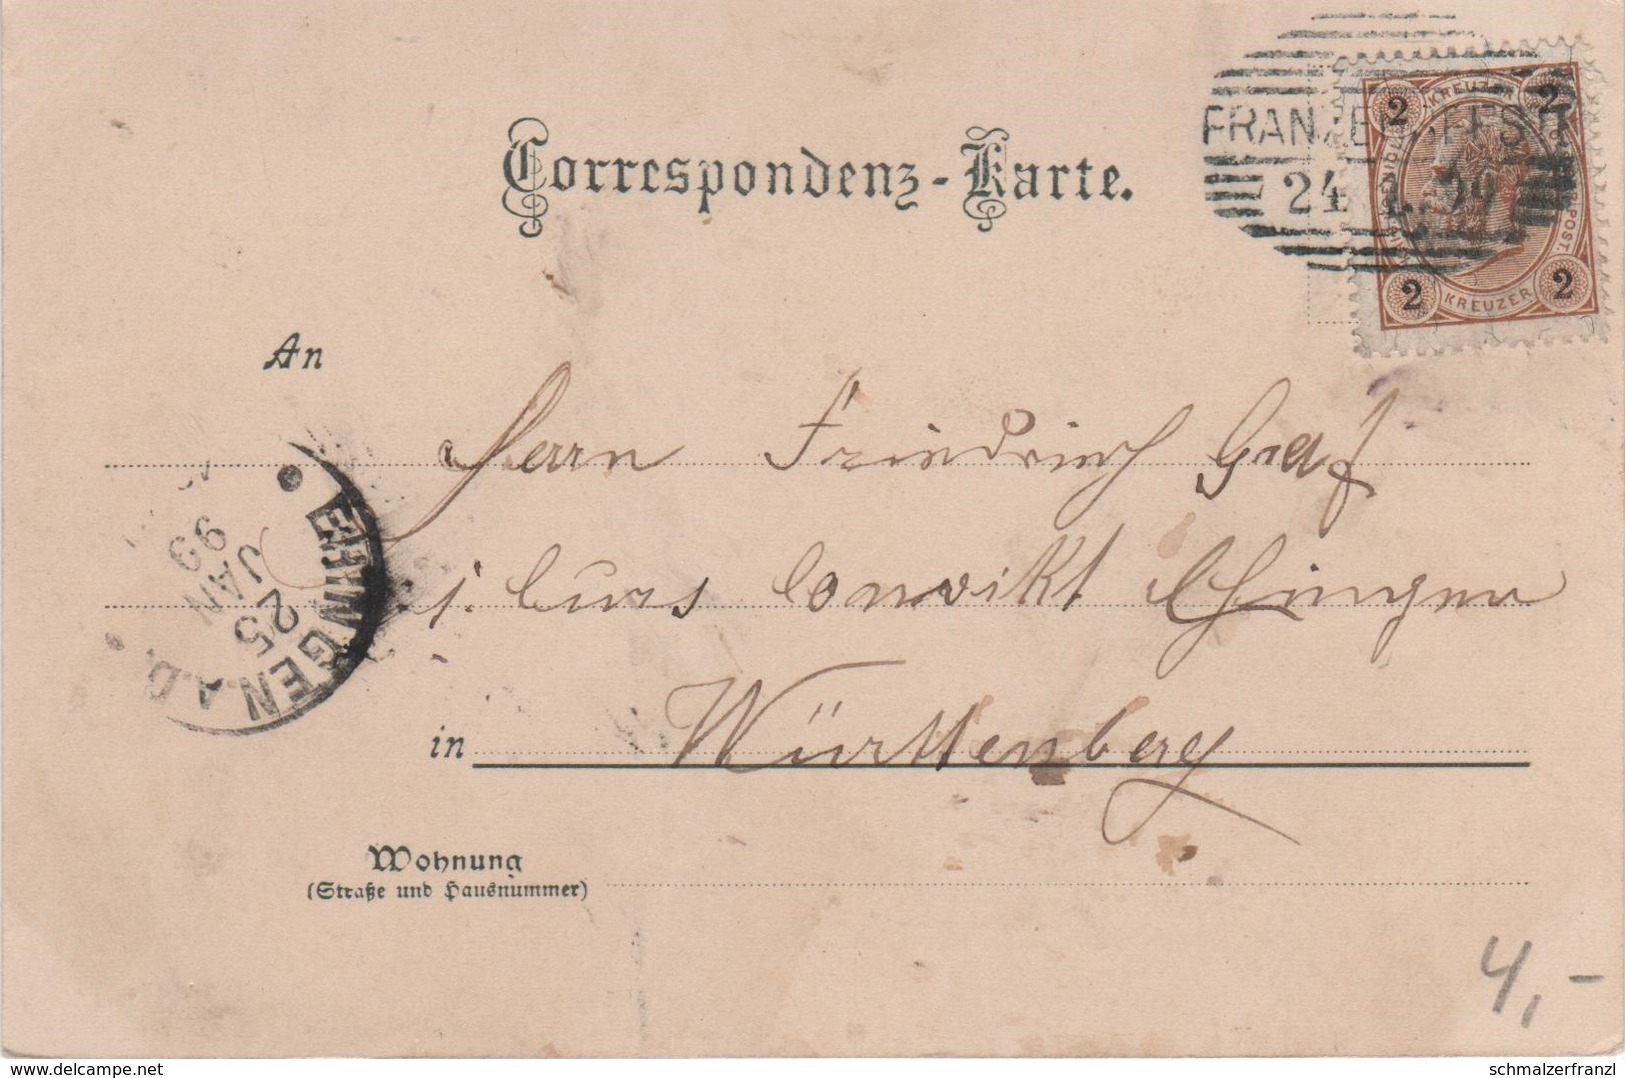 Correspondenz-Karte.
FRANZENSFESTE
24 1 99
2 KREUZER 2
2 KREUZER 2
An
Herrn Friedrich Graf
EHINGEN A.D.
25
JAN
99
i. Curs Convikt Ehingen
in Württenberg
Wohnung
(Straße und Hausnummer)
4,-
delcampe.net
schmalzerfranzl